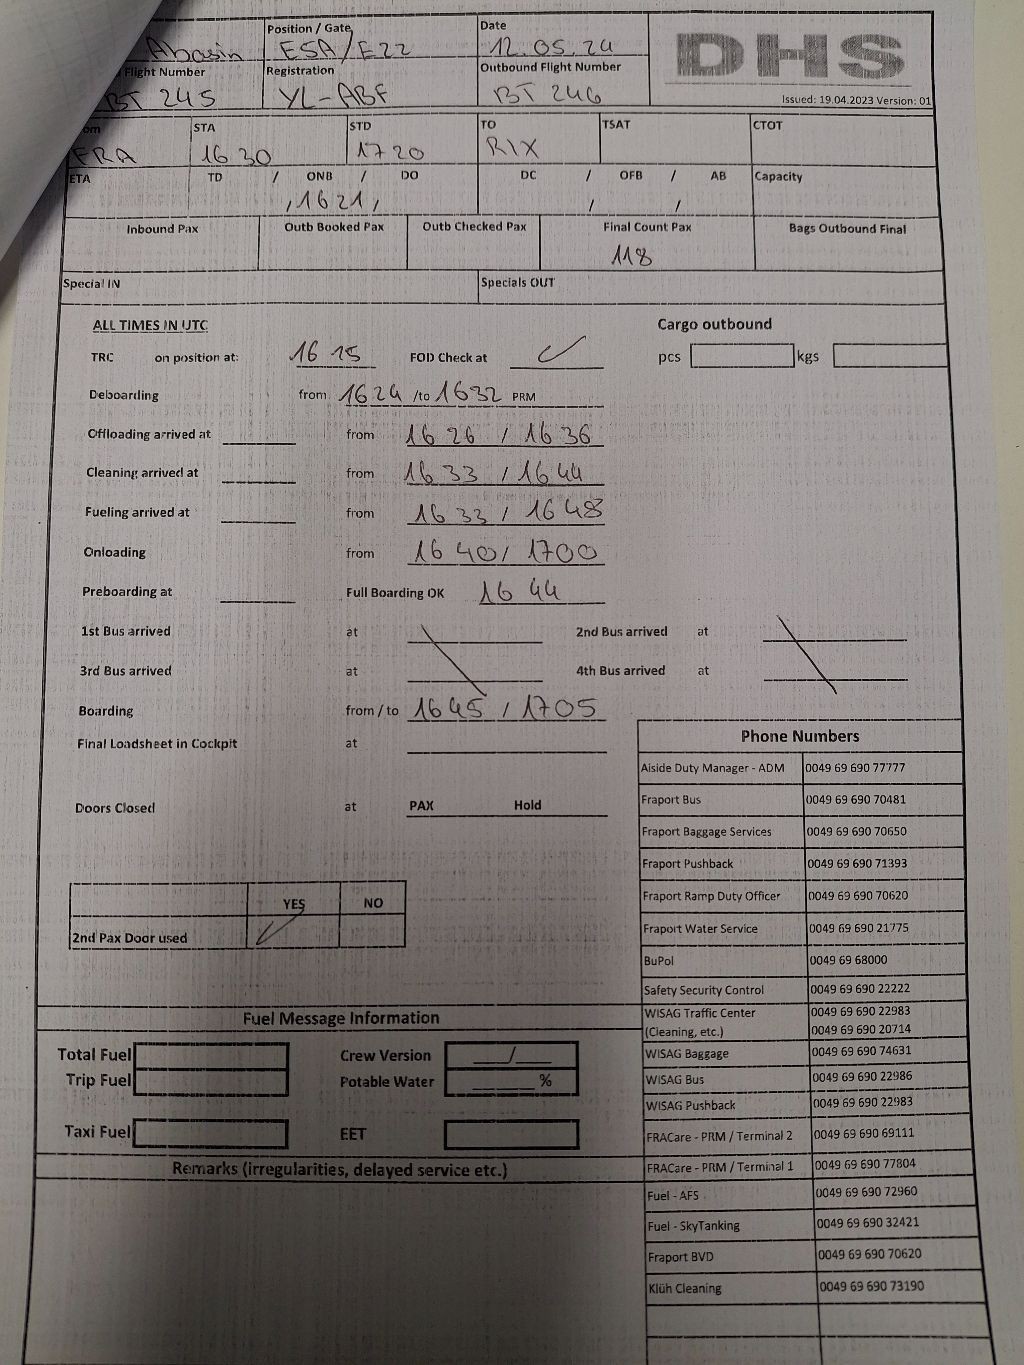 Position / Gate Date
Abasin E5A/E22 12.05.24 DHS
Flight Number Registration Outbound Flight Number
BT 245 YL-ABF BT 246
Issued: 19.04.2023 Version: 01
om STA STD TO TSAT CTOT
FRA 16 30 17 20 RIX
ETA TD / ONB / DO DC / OFB / AB Capacity
, 1621 , / /
Inbound Pax Outb Booked Pax Outb Checked Pax Final Count Pax Bags Outbound Final
118
Special IN Specials OUT
ALL TIMES IN UTC Cargo outbound
TRC on position at: 16 15 FOD Check at ✓ pcs kgs
Deboarding from 1624 /to 1632 PRM
Offloading arrived at from 16 26 / 16 36
Cleaning arrived at from 16 33 / 16 44
Fueling arrived at from 16 33 / 16 48
Onloading from 16 40 / 1700
Preboarding at Full Boarding OK 16 44
1st Bus arrived at 2nd Bus arrived at
3rd Bus arrived at 4th Bus arrived at
Boarding from / to 1645 / 1705
Final Loadsheet in Cockpit at
Doors Closed at PAX Hold
YES NO
2nd Pax Door used ✓
Fuel Message Information
Total Fuel Crew Version /
Trip Fuel Potable Water %
Taxi Fuel EET
Remarks (irregularities, delayed service etc.)
Phone Numbers
Aiside Duty Manager - ADM 0049 69 690 77777
Fraport Bus 0049 69 690 70481
Fraport Baggage Services 0049 69 690 70650
Fraport Pushback 0049 69 690 71393
Fraport Ramp Duty Officer 0049 69 690 70620
Fraport Water Service 0049 69 690 21775
BuPol 0049 69 68000
Safety Security Control 0049 69 690 22222
WISAG Traffic Center 0049 69 690 22983
(Cleaning, etc.) 0049 69 690 20714
WISAG Baggage 0049 69 690 74631
WISAG Bus 0049 69 690 22986
WISAG Pushback 0049 69 690 22983
FRACare - PRM / Terminal 2 0049 69 690 69111
FRACare - PRM / Terminal 1 0049 69 690 77804
Fuel - AFS 0049 69 690 72960
Fuel - SkyTanking 0049 69 690 32421
Fraport BVD 0049 69 690 70620
Klüh Cleaning 0049 69 690 73190